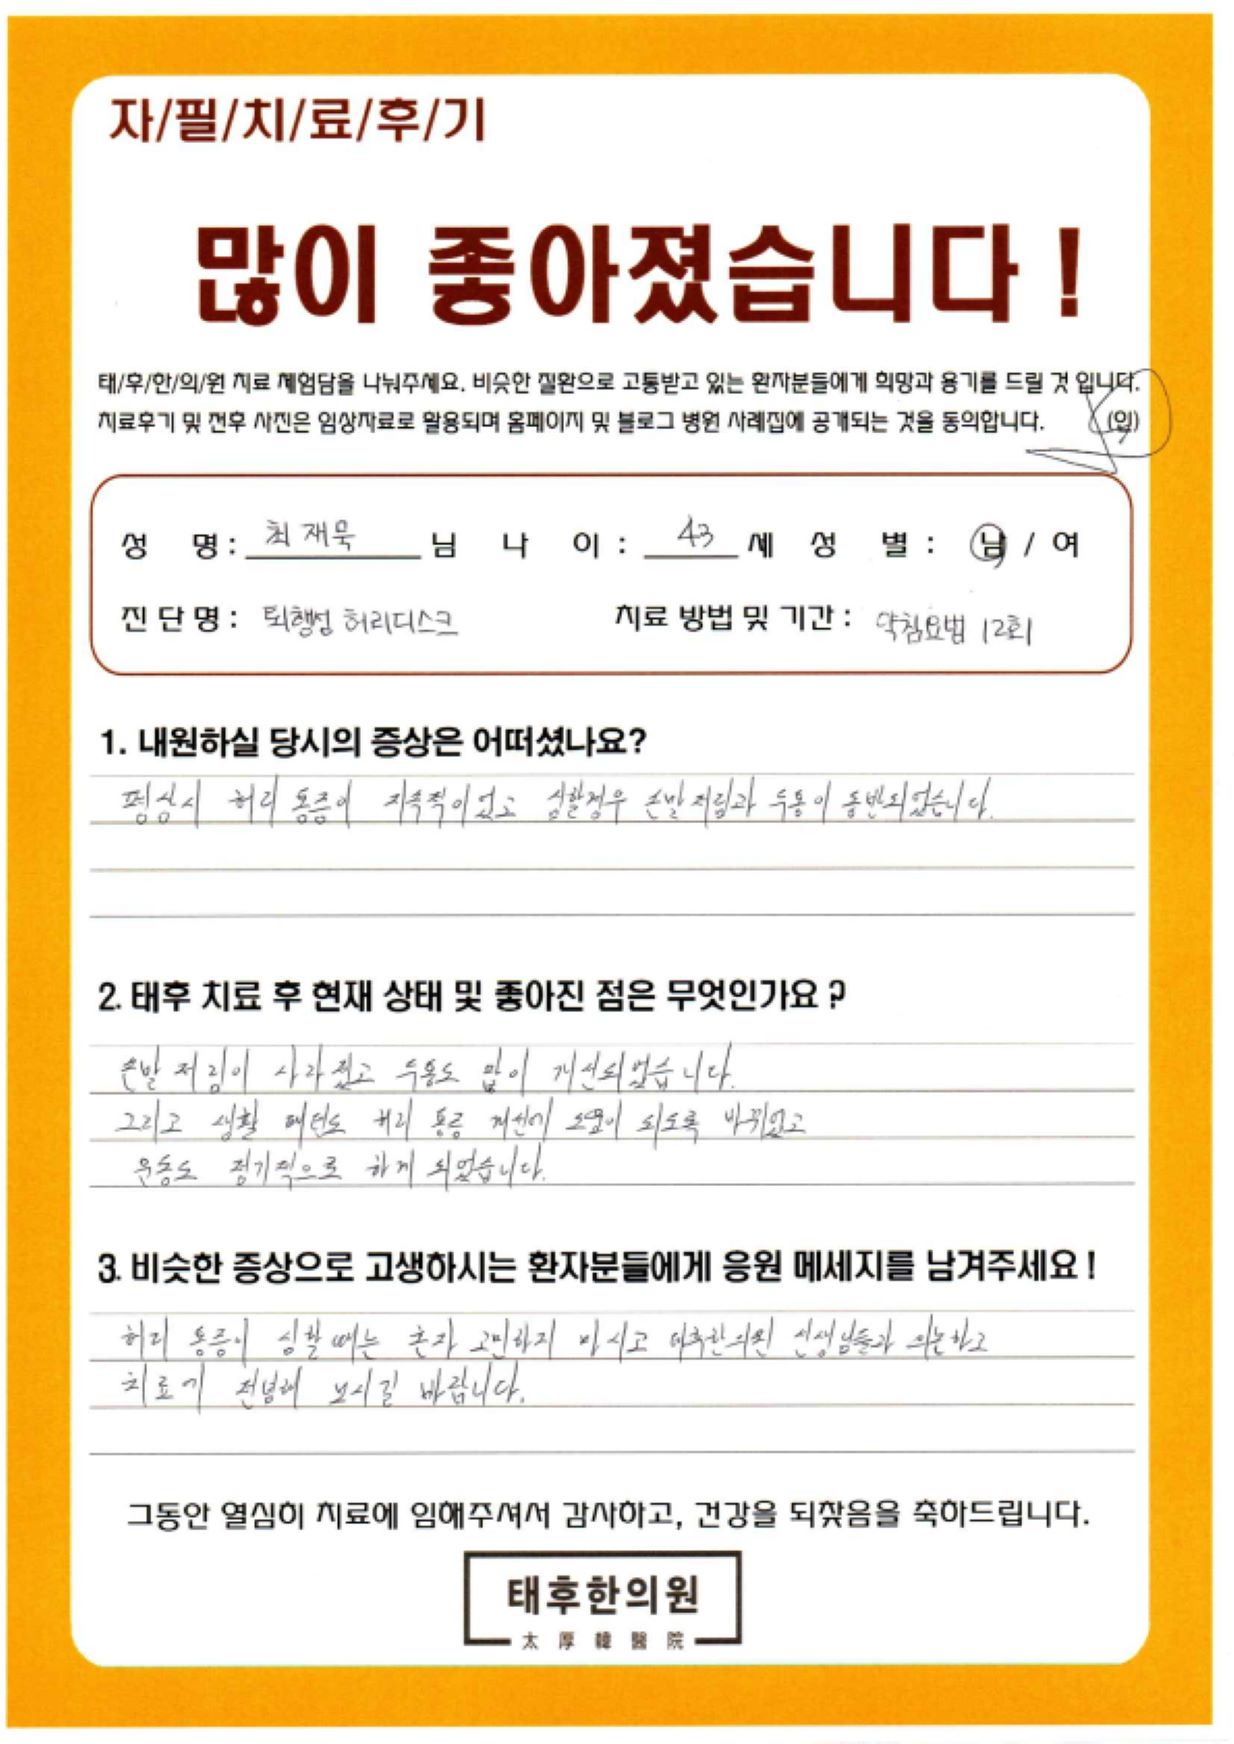 자/필/치/료/후/기
많이 좋아졌습니다!
태/후/한/의/원 치료 체험담을 나눠주세요. 비슷한 질환으로 고통받고 있는 환자분들에게 희망과 용기를 드릴 것 입니다.
치료후기 및 전후 사진은 임상자료로 활용되며 홈페이지 및 블로그 병원 사례집에 공개되는 것을 동의합니다. (인)
성 명 : 최재묵 님 나 이 : 43 세 성 별 : 남 / 여
진 단 명 : 퇴행성 허리디스크 치료 방법 및 기간 : 약침요법 12회
1. 내원하실 당시의 증상은 어떠셨나요?
평상시 허리 통증이 지속적이었고 심할경우 손발저림과 두통이 동반되었습니다.
2. 태후 치료 후 현재 상태 및 좋아진 점은 무엇인가요 ?
손발 저림이 사라졌고 두통도 많이 개선되었습니다.
그리고 생활 패턴도 허리 통증 개선에 도움이 되도록 바뀌었고
운동도 정기적으로 하게 되었습니다.
3. 비슷한 증상으로 고생하시는 환자분들에게 응원 메세지를 남겨주세요 !
허리 통증이 심할 때는 혼자 고민하지 마시고 태후한의원 선생님들과 의논하고
치료에 전념해 보시길 바랍니다.
그동안 열심히 치료에 임해주셔서 감사하고, 건강을 되찾음을 축하드립니다.
태후한의원
太厚韓醫院